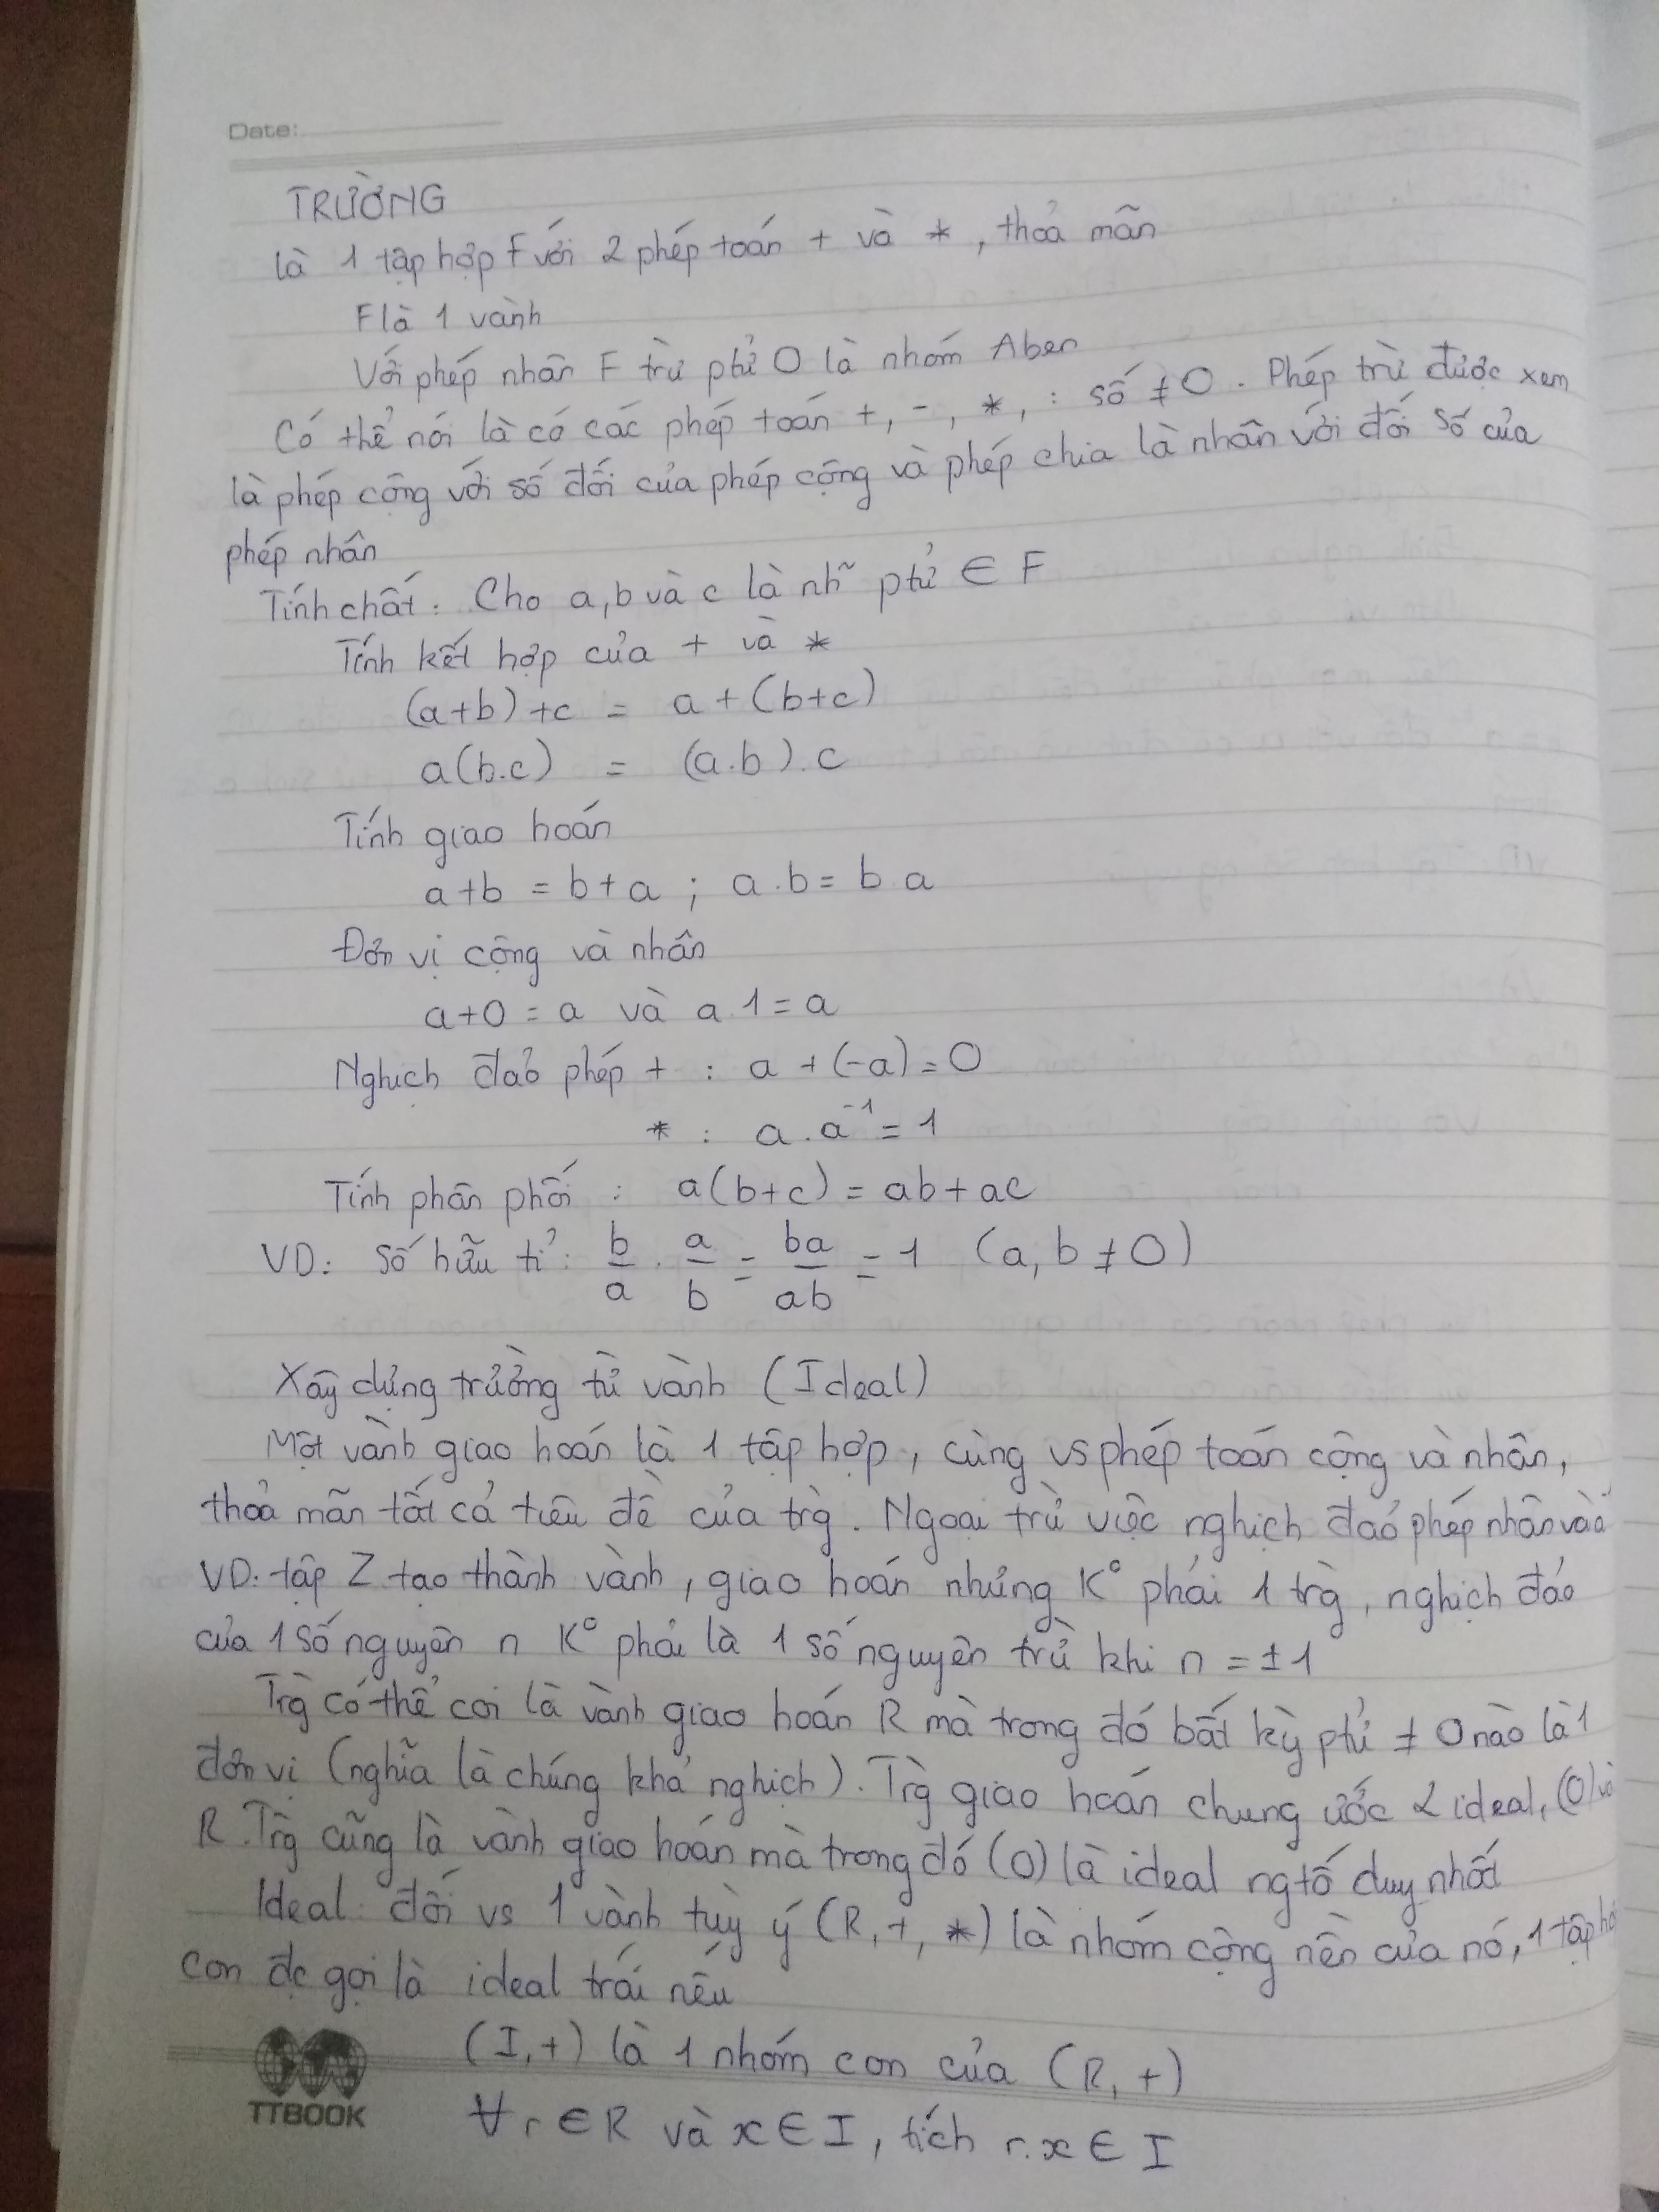 Date:
TRƯỜNG
là 1 tập hợp F với 2 phép toán + và *, thoả mãn
F là 1 vành
Với phép nhân F trừ ptử 0 là nhóm Aben
Có thể nói là có các phép toán +, -, *, : số ≠ 0. Phép trừ được xem
là phép cộng với số đối của phép cộng và phép chia là nhân với đối số của
phép nhân
Tính chất: Cho a, b và c là nh~ ptử ∈ F
Tính kết hợp của + và *
(a+b)+c = a+(b+c)
a(b.c) = (a.b).c
Tính giao hoán
a+b = b+a ; a.b = b.a
Đơn vị cộng và nhân
a+0 = a và a.1 = a
Nghịch đảo phép + : a + (-a) = 0
* : a.a⁻¹ = 1
Tính phân phối : a(b+c) = ab+ac
VD: Số hữu tỉ: b/a . a/b = ba/ab = 1 (a, b ≠ 0)
Xây dựng trường từ vành (Ideal)
Một vành giao hoán là 1 tập hợp, cùng vs phép toán cộng và nhân,
thoả mãn tất cả tiêu đề của trg. Ngoại trừ việc nghịch đảo phép nhân
VD: tập Z tạo thành vành, giao hoán nhưng K° phải 1 trg, nghịch đảo
của 1 số nguyên n K° phải là 1 số nguyên trừ khi n = ±1
Trg có thể coi là vành giao hoán R mà trong đó bất kỳ ptử ≠ 0 nào là 1
đơn vị (nghĩa là chúng khả nghịch). Trg giao hoán chung ước 2 ideal, (0) và
R. Trg cũng là vành giao hoán mà trong đó (0) là ideal ng tố duy nhất
Ideal: đối vs 1 vành tuỳ ý (R, +, *) là nhóm cộng nền của nó, 1 tập
con đc gọi là ideal trái nếu
(I, +) là 1 nhóm con của (R, +)
∀ r ∈ R và x ∈ I, tích r.x ∈ I
TTBOOK